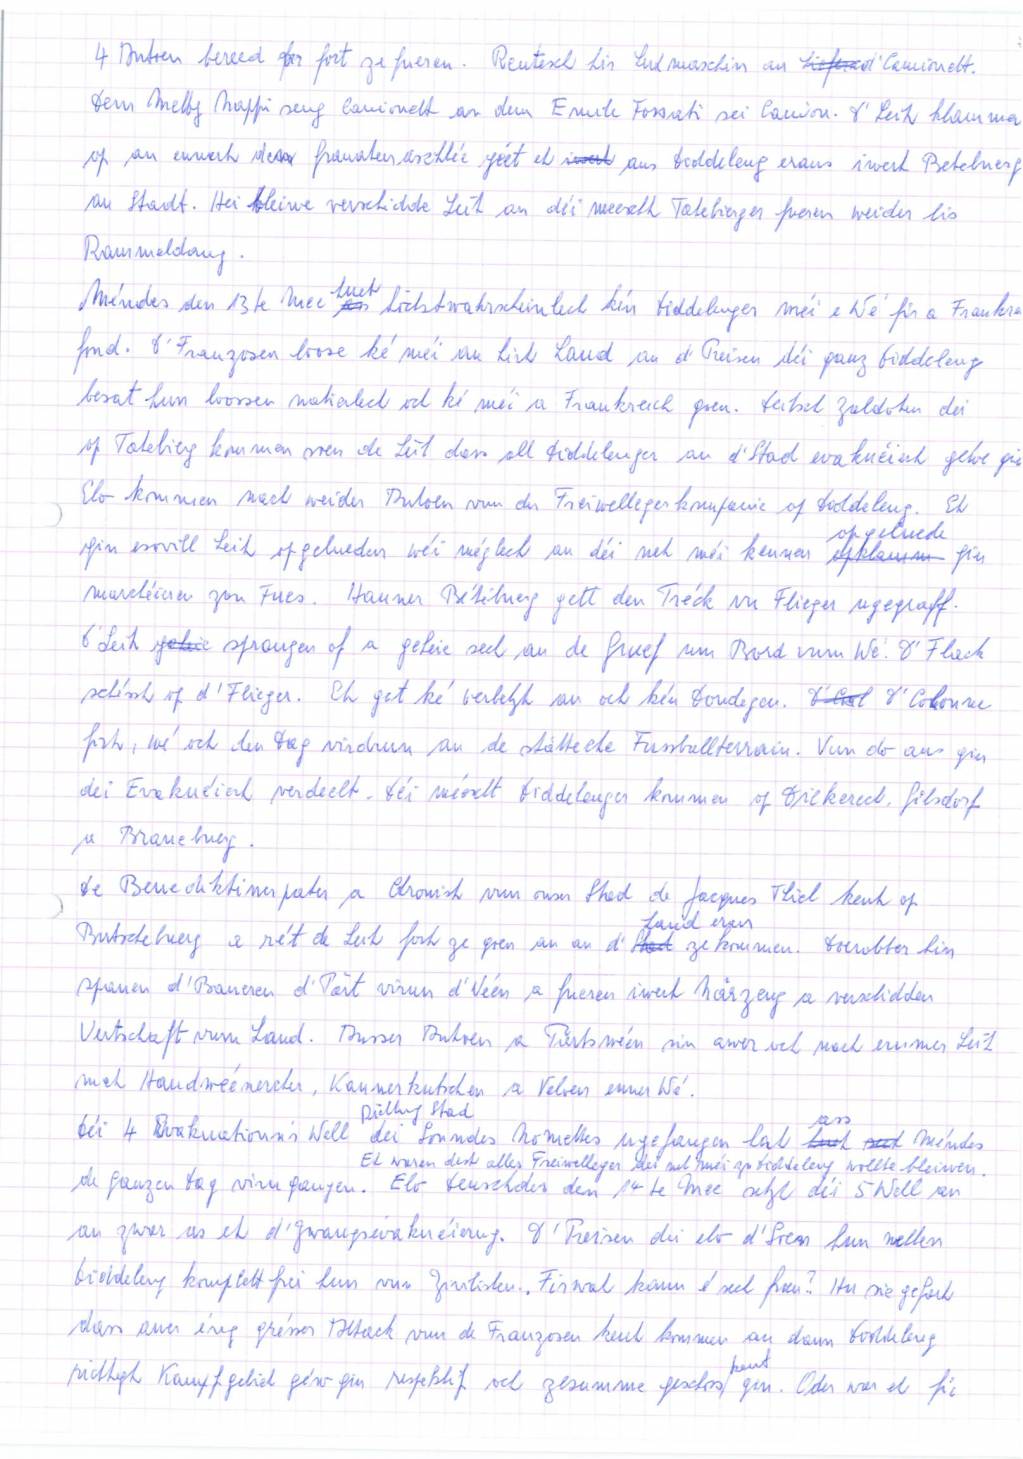 4 Autoen bereed fir fort ze fueren. Reutesch bis Ludmaschin an d'Camionett.
Dem Metty Nappi seng Camionett an dem Emile Fossati sei Camion. D'Leit klamme
op an ennert dem Granatenaschlée géet et aus Diddeleng eraus iwert Beteburg
an Stadt. Hei bleiwe verschidde Leit an déi meescht Teteberger fueren weider bis
Rammeldang.
Méndes den 13te Mee huet héichstwahrscheinlech kén Diddelenger méi e Wé fir a Frankra
fond. D'Franzosen loosse ké méi an hirt Land an d'Preisen déi ganz Diddeleng
besat hun loossen natierlech och ké méi a Frankreich goen. Deitsch Zaldoten déi
op Tetebierg kommen soen de Leit dass all Diddelenger an d'Stad evakuéiert gewe gin
Elo kommen nach weider Autoen vun der Freiwellegerkompanie op Diddeleng. Et
gin esovill Leit opgelueden wéi méglech an déi net méi kennen opgeluede gin
marschéieren zon Fuss. Hanner Béteburg gett den Tréck vu Flieger ugegraff.
D'Leit sprangen of a geheie sech an de Gruef um Bord vum Wé. D'Flack
schéisst op d'Flieger. Et get ké verletzt an och kén Doudegen. D'Colonne
fort, wé och den Dag virdrun an de stättesche Fussballterrain. Vun do aus gin
déi Evakuéiert verdeelt. Déi meescht Diddelenger kommen op Dikerech, Gilsdorf
a Brandeburg.
De Benediktinerpater a Chronist vun onser Stad de Jacques Thiel kent op
Butschebuerg a rét de Leit fort ze goen an an d'Land eran ze kommen. Dorobber hin
spanen d'Baueren d'Päert virun d'Wéen a fueren iwert Närzeng a verschidden
Uertschaft vum Land. Ausser Autoen a Päertswéen sin awer och nach ëmmer Leit
mat Handweenercher, Kannerkutschen a Veloen enner Wé.
Déi 4 Evakuatioun's Well déi Richtung Stad Sonndes Nomettes ugefaangen hat ass Méndes
de ganzen Dag virugaangen. Et waren dest alles Freiwelleger déi net méi zu Diddeleng wollte bleiwen.
Elo Denschdes den 14te Mee setzt déi 5 Well an
an zwar as et d'Zwangsevakuéierung. D'Preisen déi elo d'Soen hun wellen
Diddeleng komplett frei hun vun Zivilisten. Firwat kann é sech froen? Hu sie gefaart
dass awer éng gréisser Attack vun de Franzosen kent kommen an dann Diddeleng
richtegt Kampfgebiet géiw gin respektif och zesumme geschoss kent gin. Oder war et fir